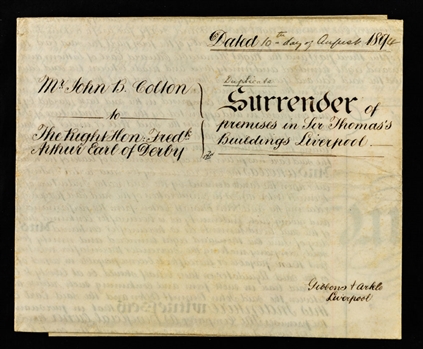 Dated 10th day of August 1894
Mr. John B. Colton
to
The Right Hon. Fredk.
Arthur Earl of Derby
Duplicate
Surrender of
premises in Sir Thomas's
Buildings Liverpool.
Gibbons & Arkle
Liverpool